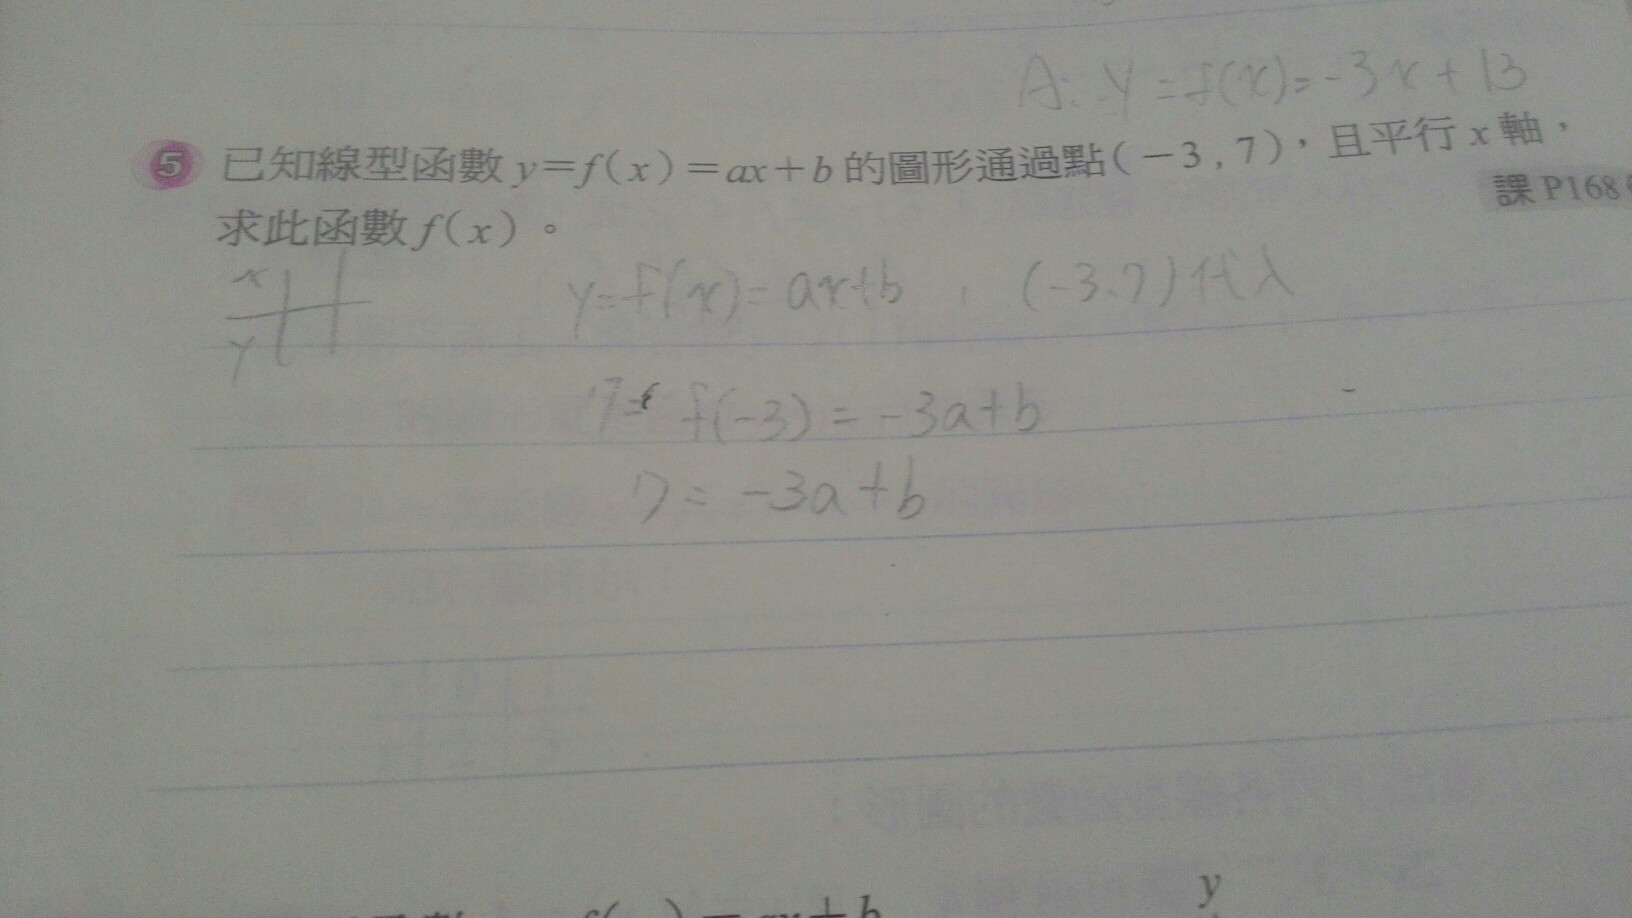 A: y=f(x)=-3x+13
5 已知線型函數 y=f(x)=ax+b 的圖形通過點(-3,7)，且平行 x 軸，
課 P168
求此函數 f(x)。
x
y
y=f(x)=ax+b , (-3、7)代入
7= f(-3)=-3a+b
7=-3a+b
y